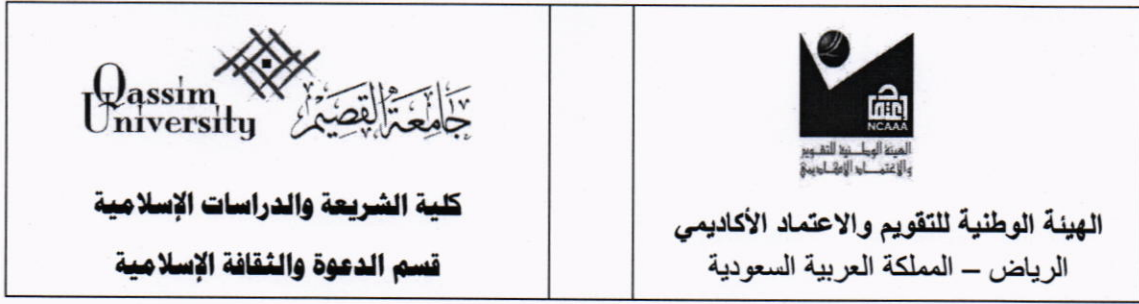 NCAAA
الهيئة الوطنية للتقويم
والاعتماد الأكاديمي
الهيئة الوطنية للتقويم والاعتماد الأكاديمي
الرياض – المملكة العربية السعودية
Qassim
University
جامعة القصيم
كلية الشريعة والدراسات الإسلامية
قسم الدعوة والثقافة الإسلامية